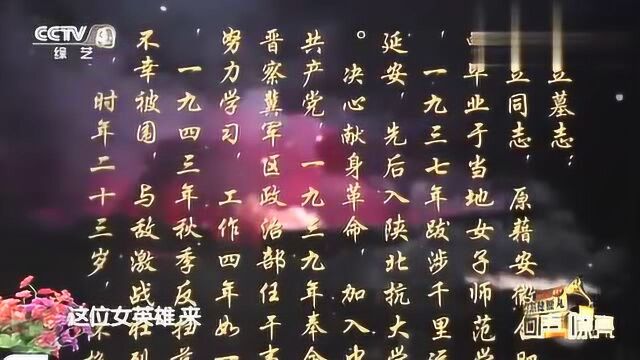 CCTV 3
综艺
立墓志：
立同志，原籍安徽
毕业于当地女子师范学
一九三七年跋涉千里
延安，先后入陕北抗大学
。决心献身革命，加入中
共产党，一九三九年奉命
晋察冀军区政治部任干事
努力学习，工作四年如一
，一九四三年秋季反扫荡
不幸被围，与敌激战壮烈
，时年二十三岁，
这位女英雄 来
回声嘹亮